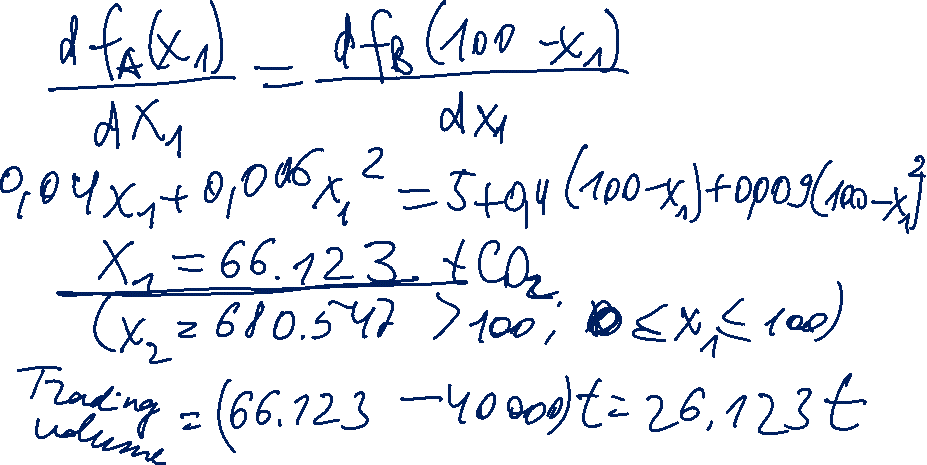 d fA(x1) / dx1 = d fB(100 - x1) / dx1
0,04x1 + 0,006x1² = 5 + 0,4(100 - x1) + 0,009(100 - x1)²
X1 = 66.123 tCO2
(x2 = 680.547 > 100; 0 ≤ x1 ≤ 100)
Trading volume = (66.123 - 40000)t = 26.123t